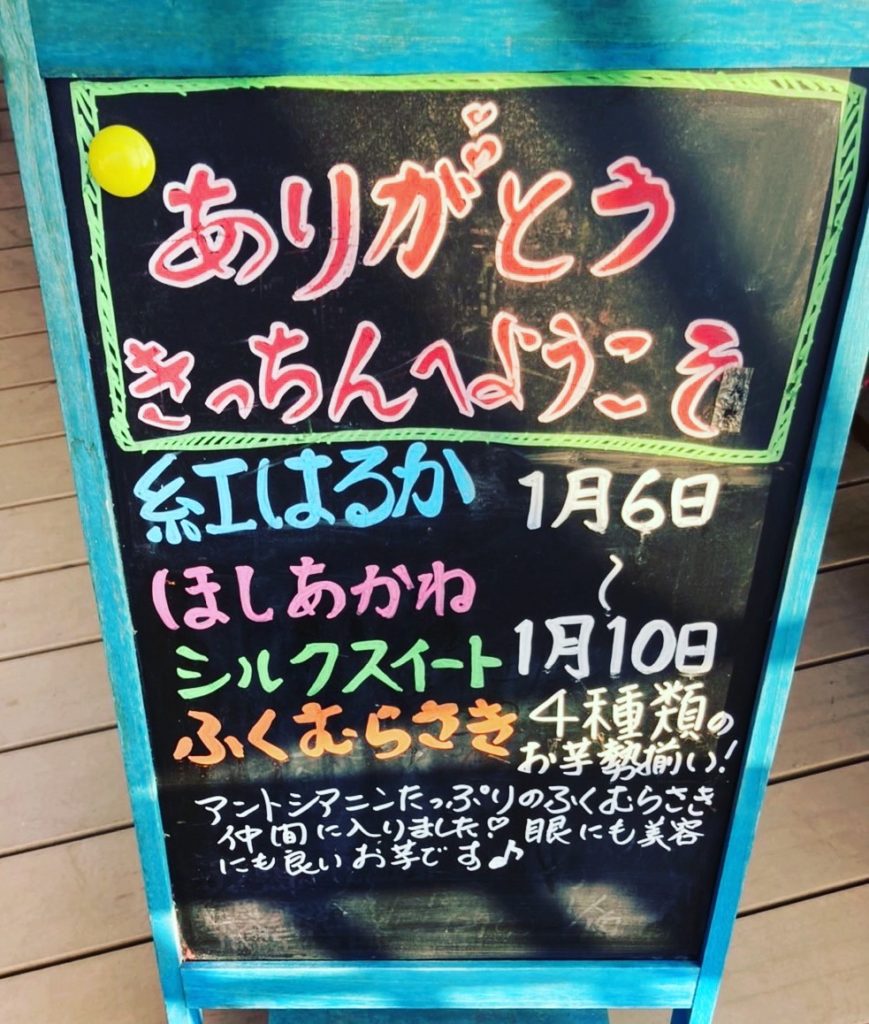 ありがとう
きっちんへようこそ
紅はるか 1月6日
ほしあかね 〜
シルクスイート 1月10日
ふくむらさき 4種類の
お芋勢揃い!
アントシアニンたっぷりのふくむらさき
仲間に入りました♡眼にも美容
にも良いお芋です♪